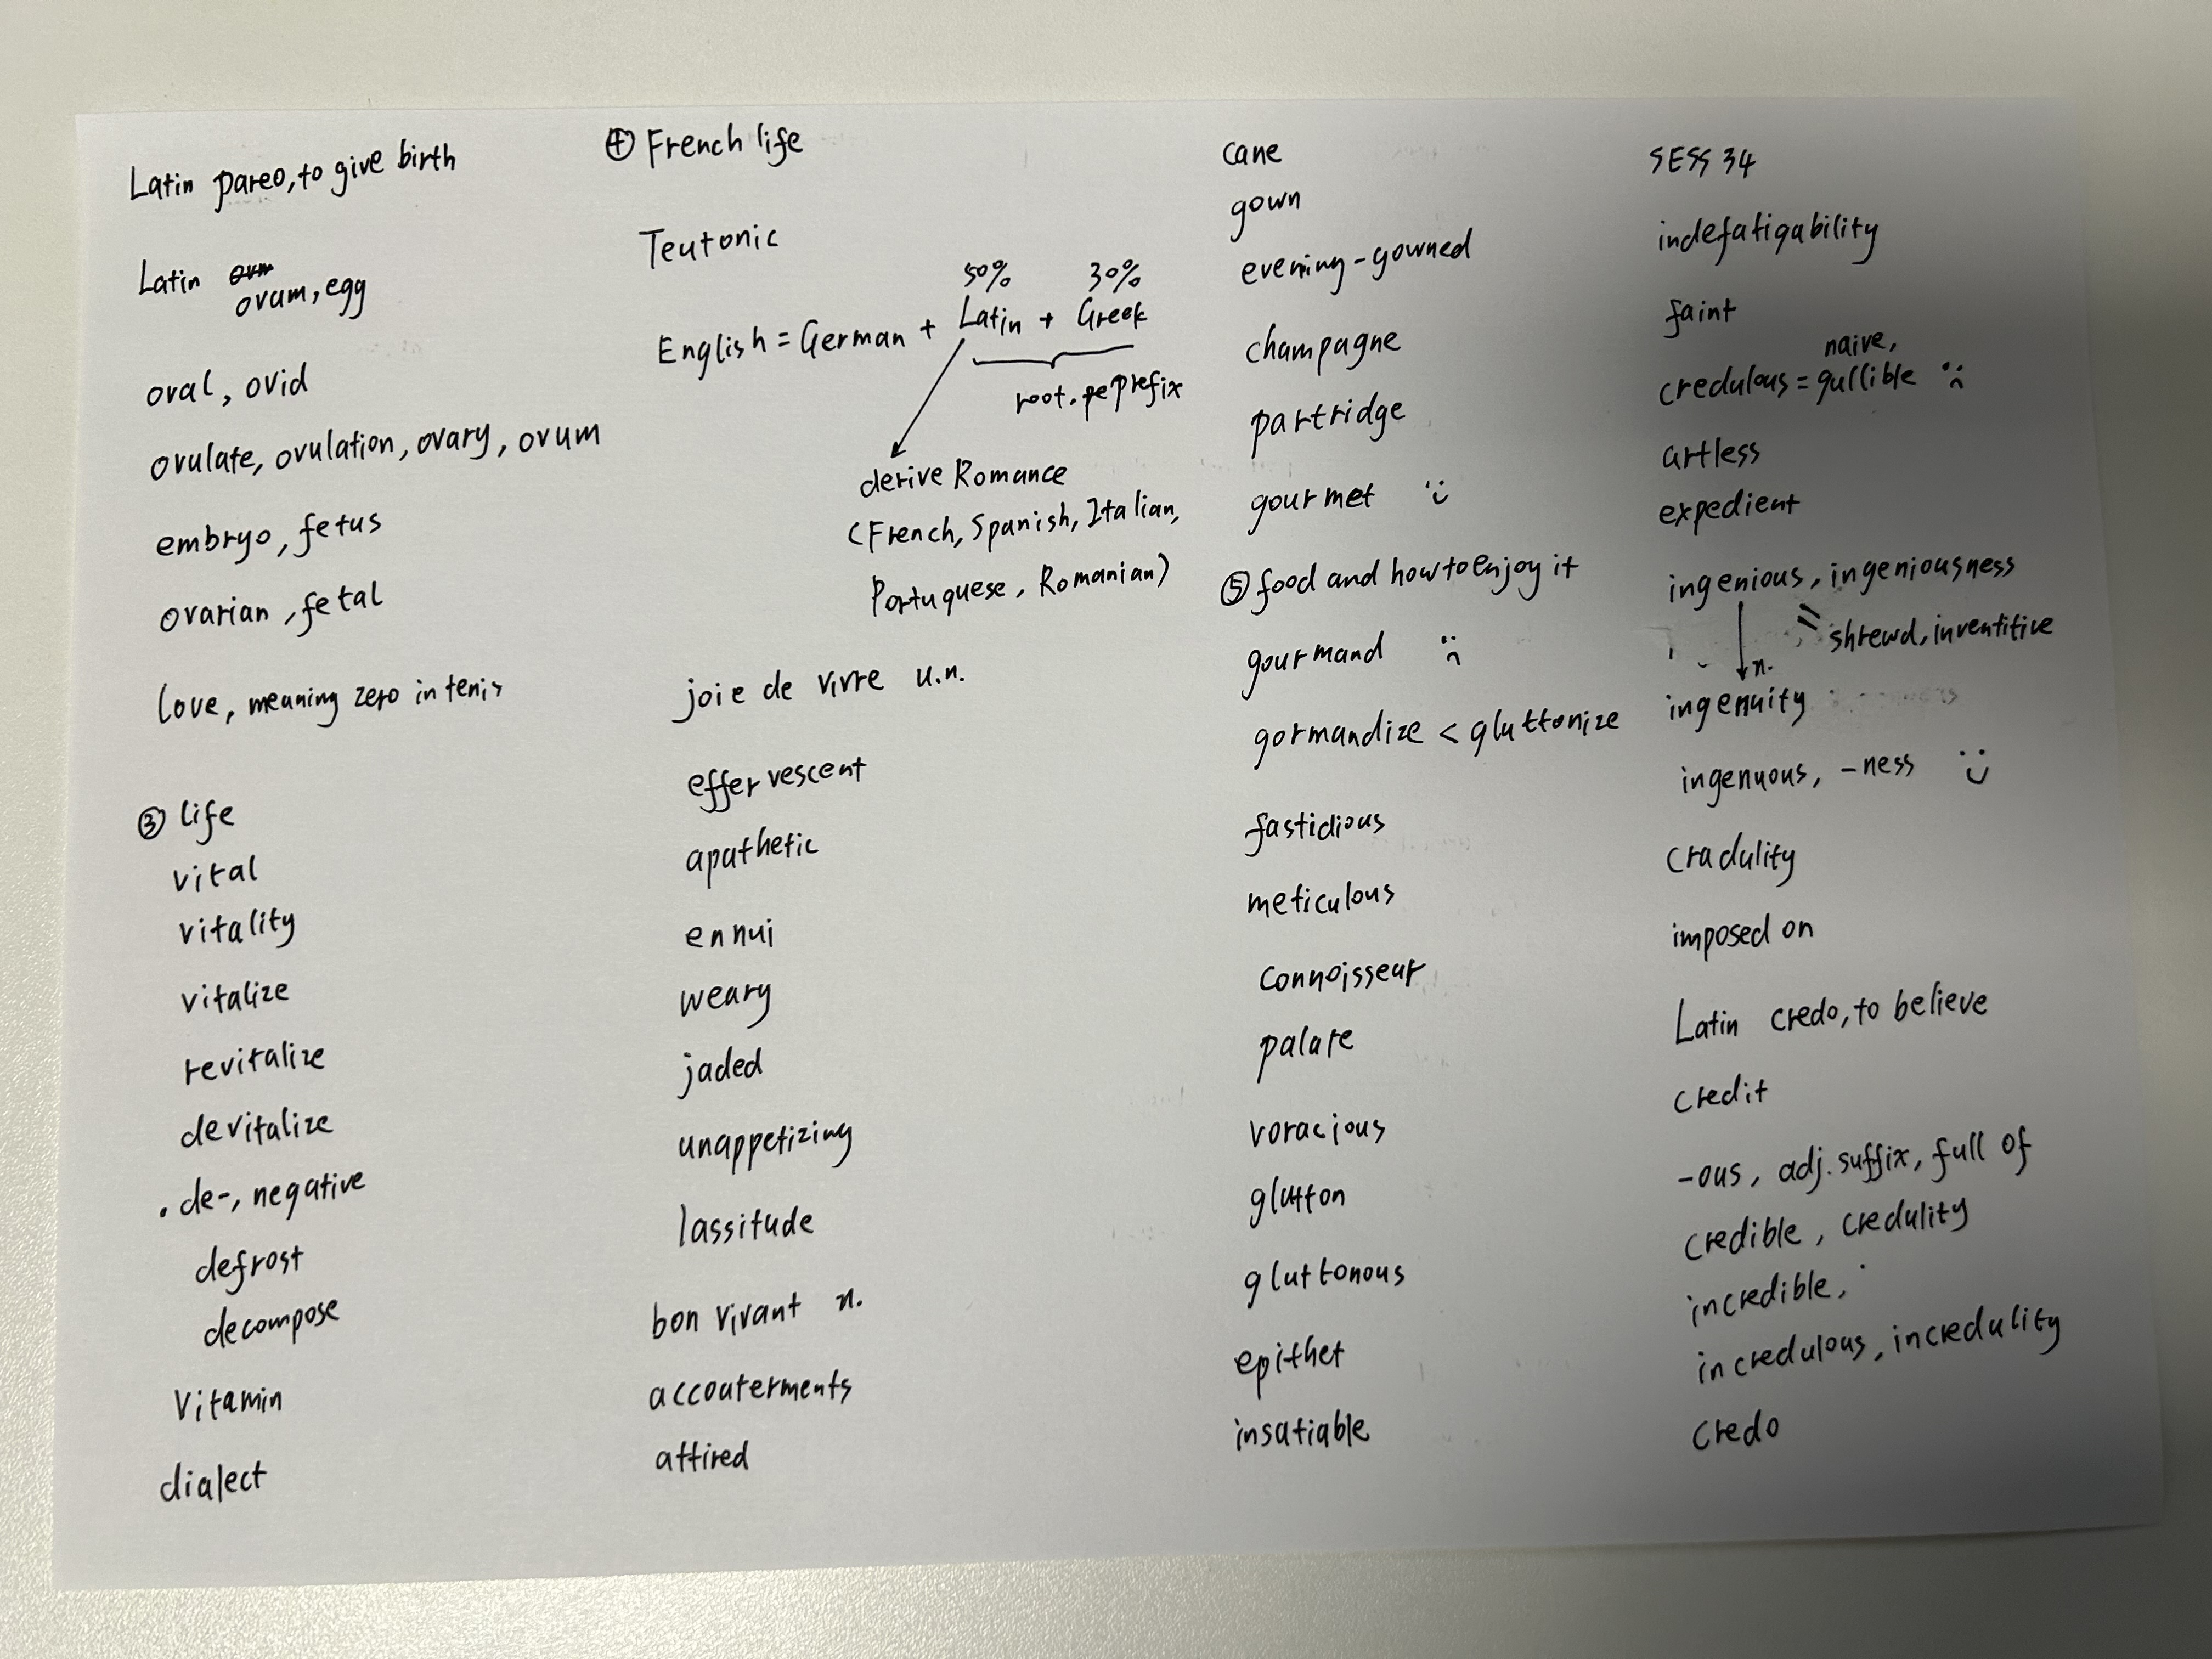 Latin pareo, to give birth
Latin ovum, egg
oval, ovid
ovulate, ovulation, ovary, ovum
embryo, fetus
ovarian, fetal
love, meaning zero in tenis
③ life
vital
vitality
vitalize
revitalize
devitalize
. de-, negative
defrost
decompose
Vitamin
dialect
④ French life
Teutonic
50% 30%
English = German + Latin + Greek
root. prefix
derive Romance
(French, Spanish, Italian,
Portuguese, Romanian)
joie de vivre u.n.
effervescent
apathetic
ennui
weary
jaded
unappetizing
lassitude
bon vivant n.
accouterments
attired
cane
gown
evening-gowned
champagne
partridge
gourmet
⑤ food and how to enjoy it
gourmand
gormandize < gluttonize
fastidious
meticulous
connoisseur
palate
voracious
glutton
gluttonous
epithet
insatiable
SESS 34
indefatigability
faint
naive,
credulous = gullible
artless
expedient
ingenious, ingeniousness
= shrewd, inventitive
n.
ingenuity
ingenuous, -ness
cradulity
imposed on
Latin credo, to believe
credit
-ous, adj. suffix, full of
credible, credulity
incredible,
incredulous, incredulity
credo